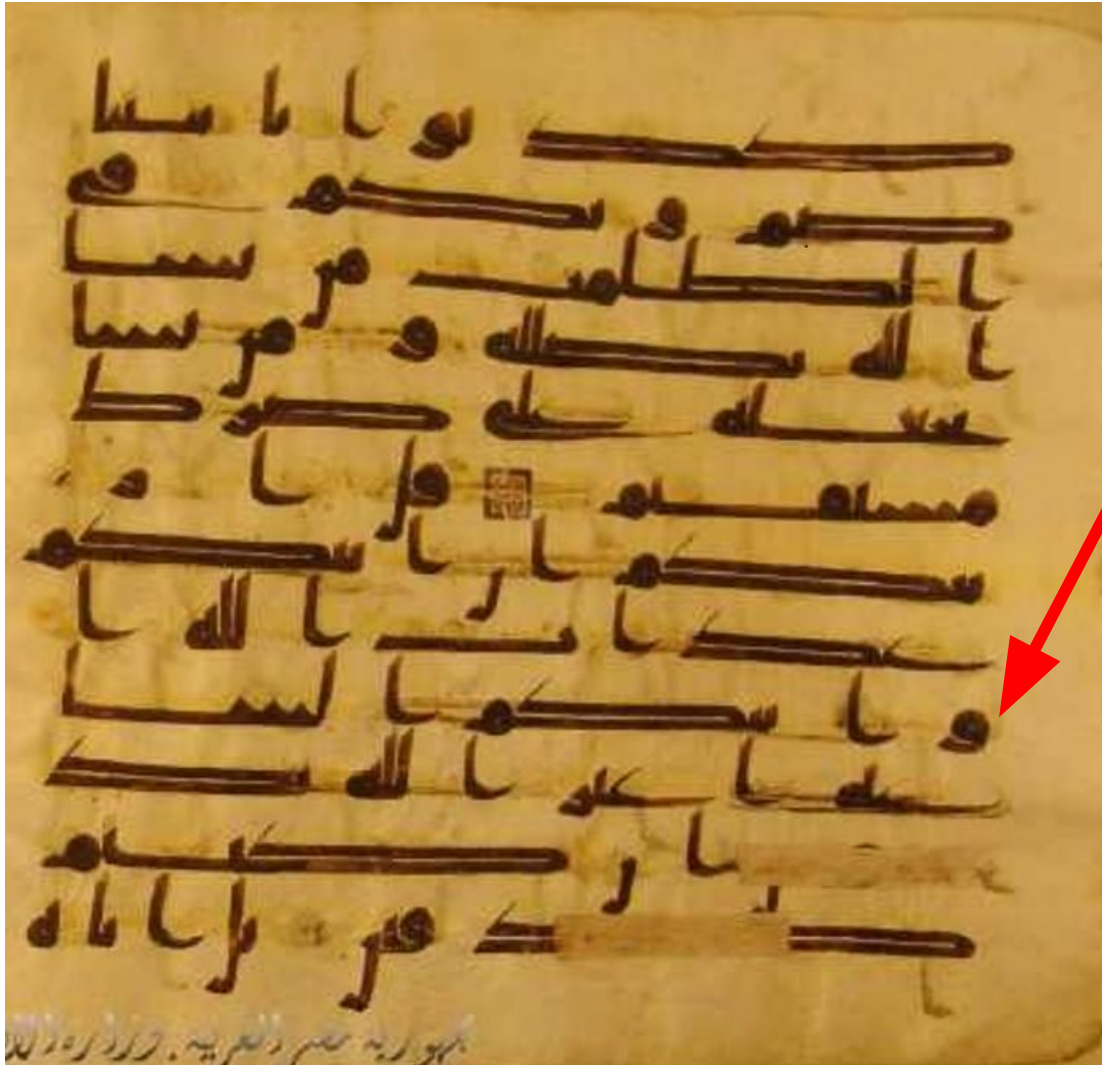 كذبوا بايتنا
صم وبكم في
الظلمت من يشا
الله يضلله ومن يشا
يجعله على صرط
مستقيم قل ار
يتكم ان اتيكم
عذاب الله ا
و اتتكم السا
عة اغير الله تد
ان كنتم
صدقين بل اياه
جمهورية مصر العربية وزارة الاو